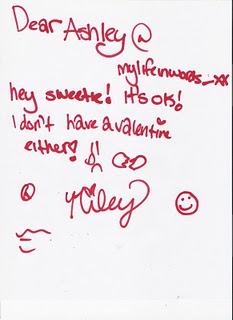 Dear Ashley @
mylifeinwords_xx
hey sweetie! It's OK!
I don't have a valentine
either!
Miley